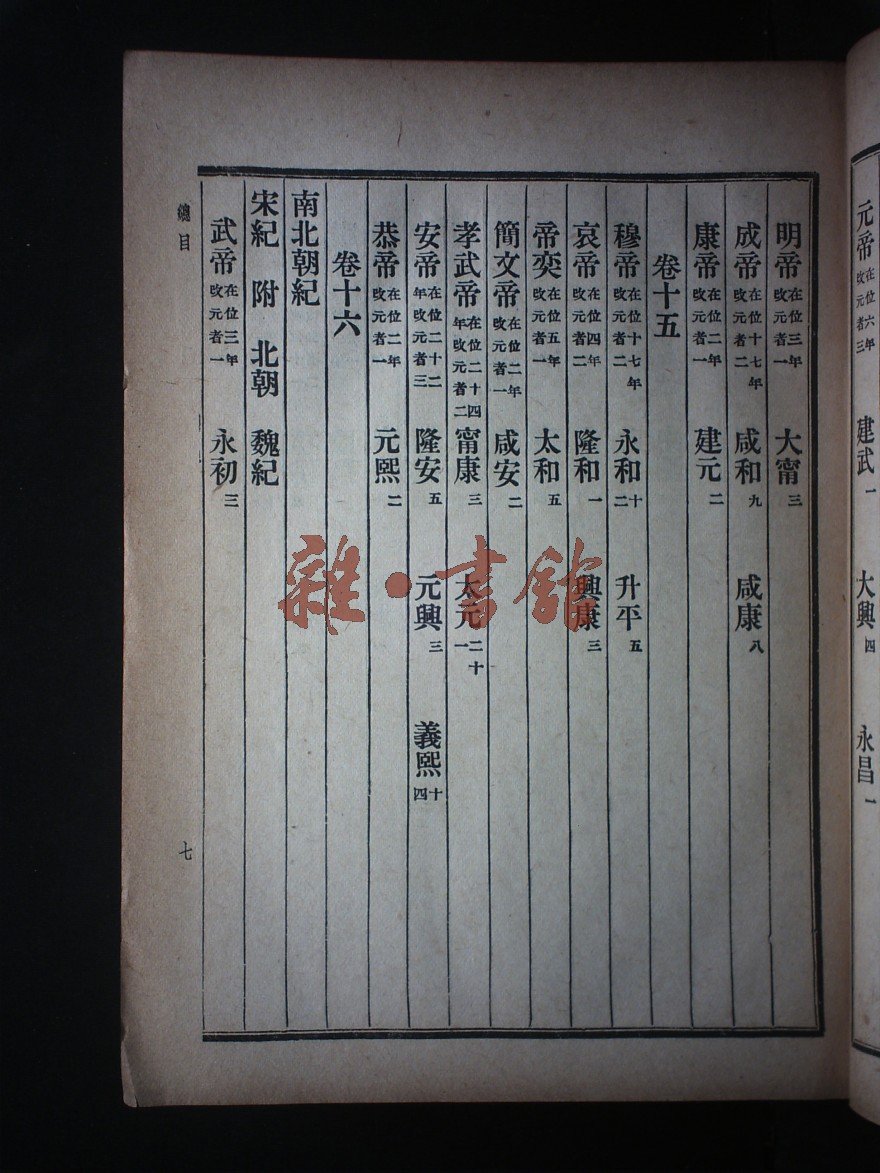 元帝在位六年改元者三 建武一 大興四 永昌一
明帝在位三年改元者一 大甯三
成帝在位十七年改元者二 咸和九 咸康八
康帝在位二年改元者一 建元二
卷十五
穆帝在位十七年改元者二 永和十二 升平五
哀帝在位四年改元者二 隆和一 興康三
帝奕在位五年改元者一 太和五
簡文帝在位二年改元者一 咸安二
孝武帝在位二十四年改元者二 甯康三 太元二十一
安帝在位二十二年改元者三 隆安五 元興三 義熙十四
恭帝在位二年改元者一 元熙二
卷十六
南北朝紀
宋紀 附 北朝 魏紀
武帝在位三年改元者一 永初三
總目
七
雜·書館